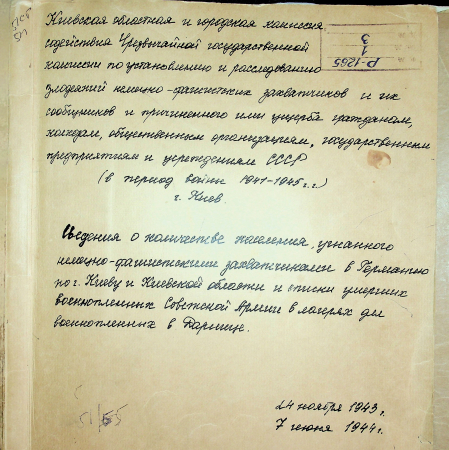 Киевская областная и городская комиссия
содействия Чрезвычайной государственной
комиссии по установлению и расследованию
злодеяний немецко-фашистских захватчиков и их
сообщников и причиненного ими ущерба гражданам,
колхозам, общественным организациям, государственным
предприятиям и учреждениям СССР
(в период войны 1941-1945 г.г.)
г. Киев
Р-1265
1
3
Сведения о количестве населения, угнанного
немецко-фашистскими захватчиками в Германию
по г. Киеву и Киевской области и списки умерших
военнопленных Советской Армии в лагерях для
военнопленных в Дарнице.
24 ноября 1943г.
7 июня 1944г.